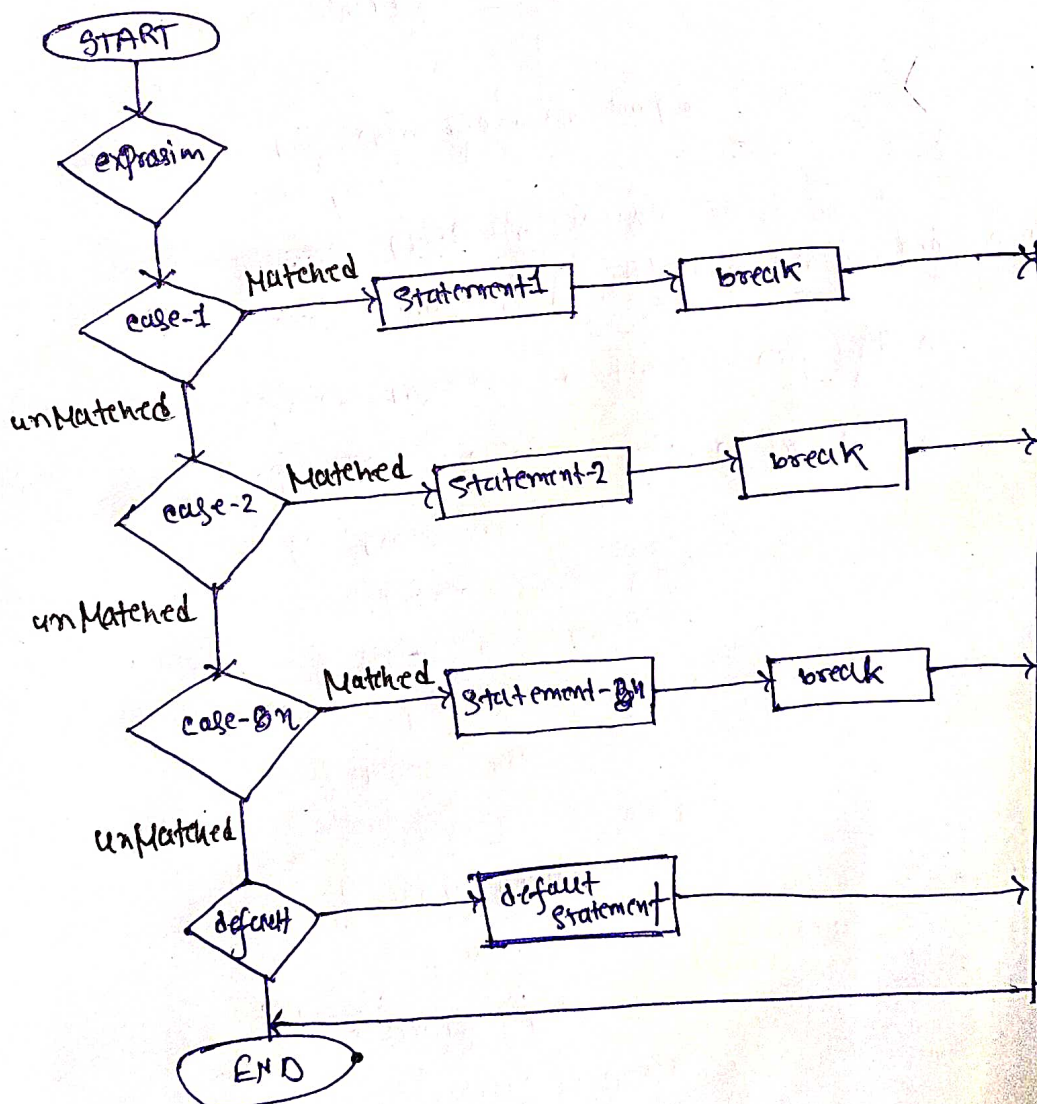 START
exprasim
case-1
Matched
Statement1
break
unMatched
case-2
Matched
Statement-2
break
unMatched
case-n
Matched
Statement-n
break
unMatched
default
defalt
statement
END